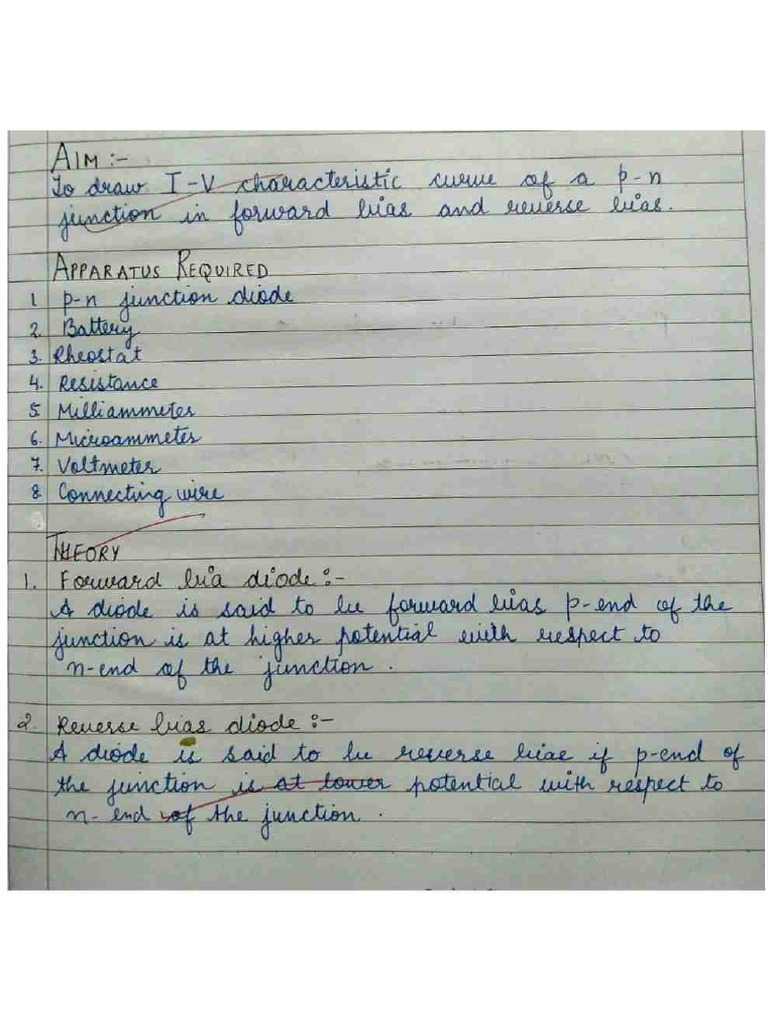 AIM :-
To draw I-V characteristic curve of a p-n
junction in forward bias and reverse bias.
APPARATUS REQUIRED
1 p-n junction diode
2. Battery
3. Rheostat
4. Resistance
5 Milliammeter
6. Microammeter
7. Voltmeter
8 Connecting wire
THEORY
1. Forward bia diode :-
A diode is said to be forward bias p-end of the
junction is at higher potential with respect to
n-end of the junction.
2. Reverse bias diode :-
A diode is said to be reverse biae if p-end of
the junction is at lower potential with respect to
n-end of the junction.